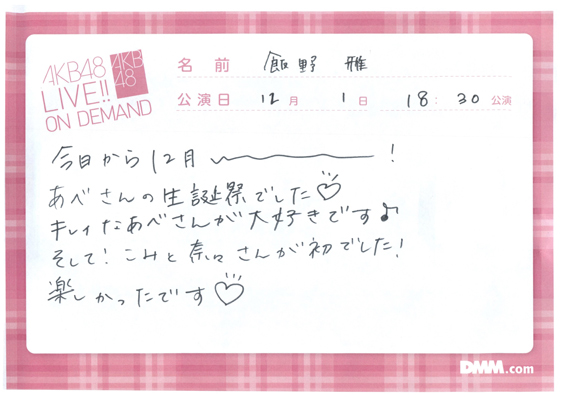 AKB48
LIVE!!
ON DEMAND
AKB
48
名前 飯野 雅
公演日 12月 1日 18:30 公演
今日から12月 〜〜〜 !
あべさんの生誕祭でした♡
キレイなあべさんが大好きです♪
そして! こみと奈々さんが初でした!
楽しかったです♡
DMM.com